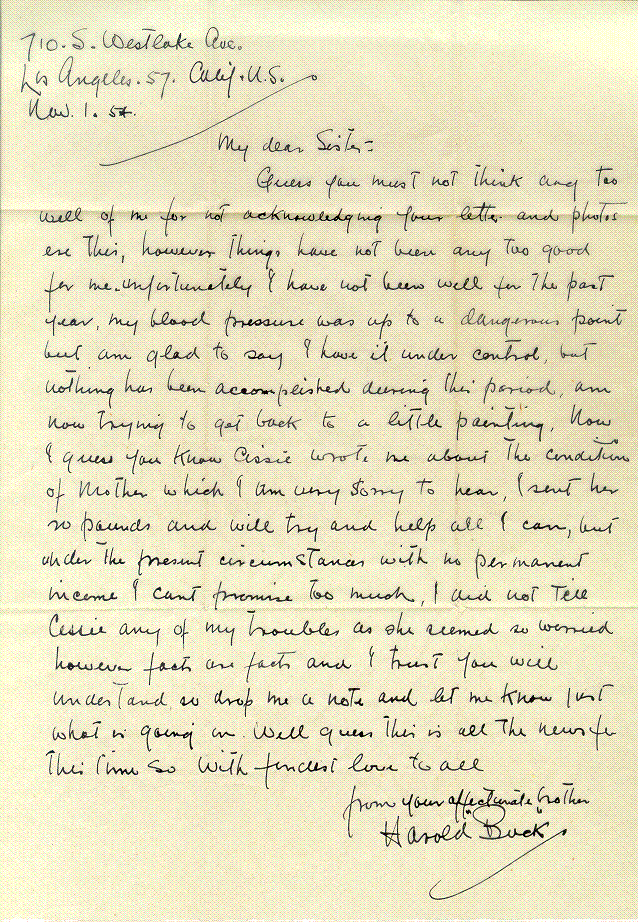 710. S. Westlake Ave.
Los Angeles. 57. Calif. U.S.
Nov. 1. 54.
My dear Sister-
Guess you must not think any too
well of me for not acknowledging your letter and photos
ere this, however things have not been any too good
for me. unfortunately I have not been well for the past
year, my blood pressure was up to a dangerous point
but am glad to say I have it under control, but
nothing has been accomplished during this period, am
now trying to get back to a little painting, Now
I guess you know Cissie wrote me about the condition
of Mother which I am very sorry to hear, I sent her
50 pounds and will try and help all I can, but
under the present circumstances with no permanent
income I cant promise too much, I did not tell
Cissie any of my troubles as she seemed so worried
however facts are facts and I trust you will
understand, so drop me a note and let me know just
what is going on. Well guess this is all the news for
this time so with fondest love to all
from your affectunate brother
Harold "Buck"